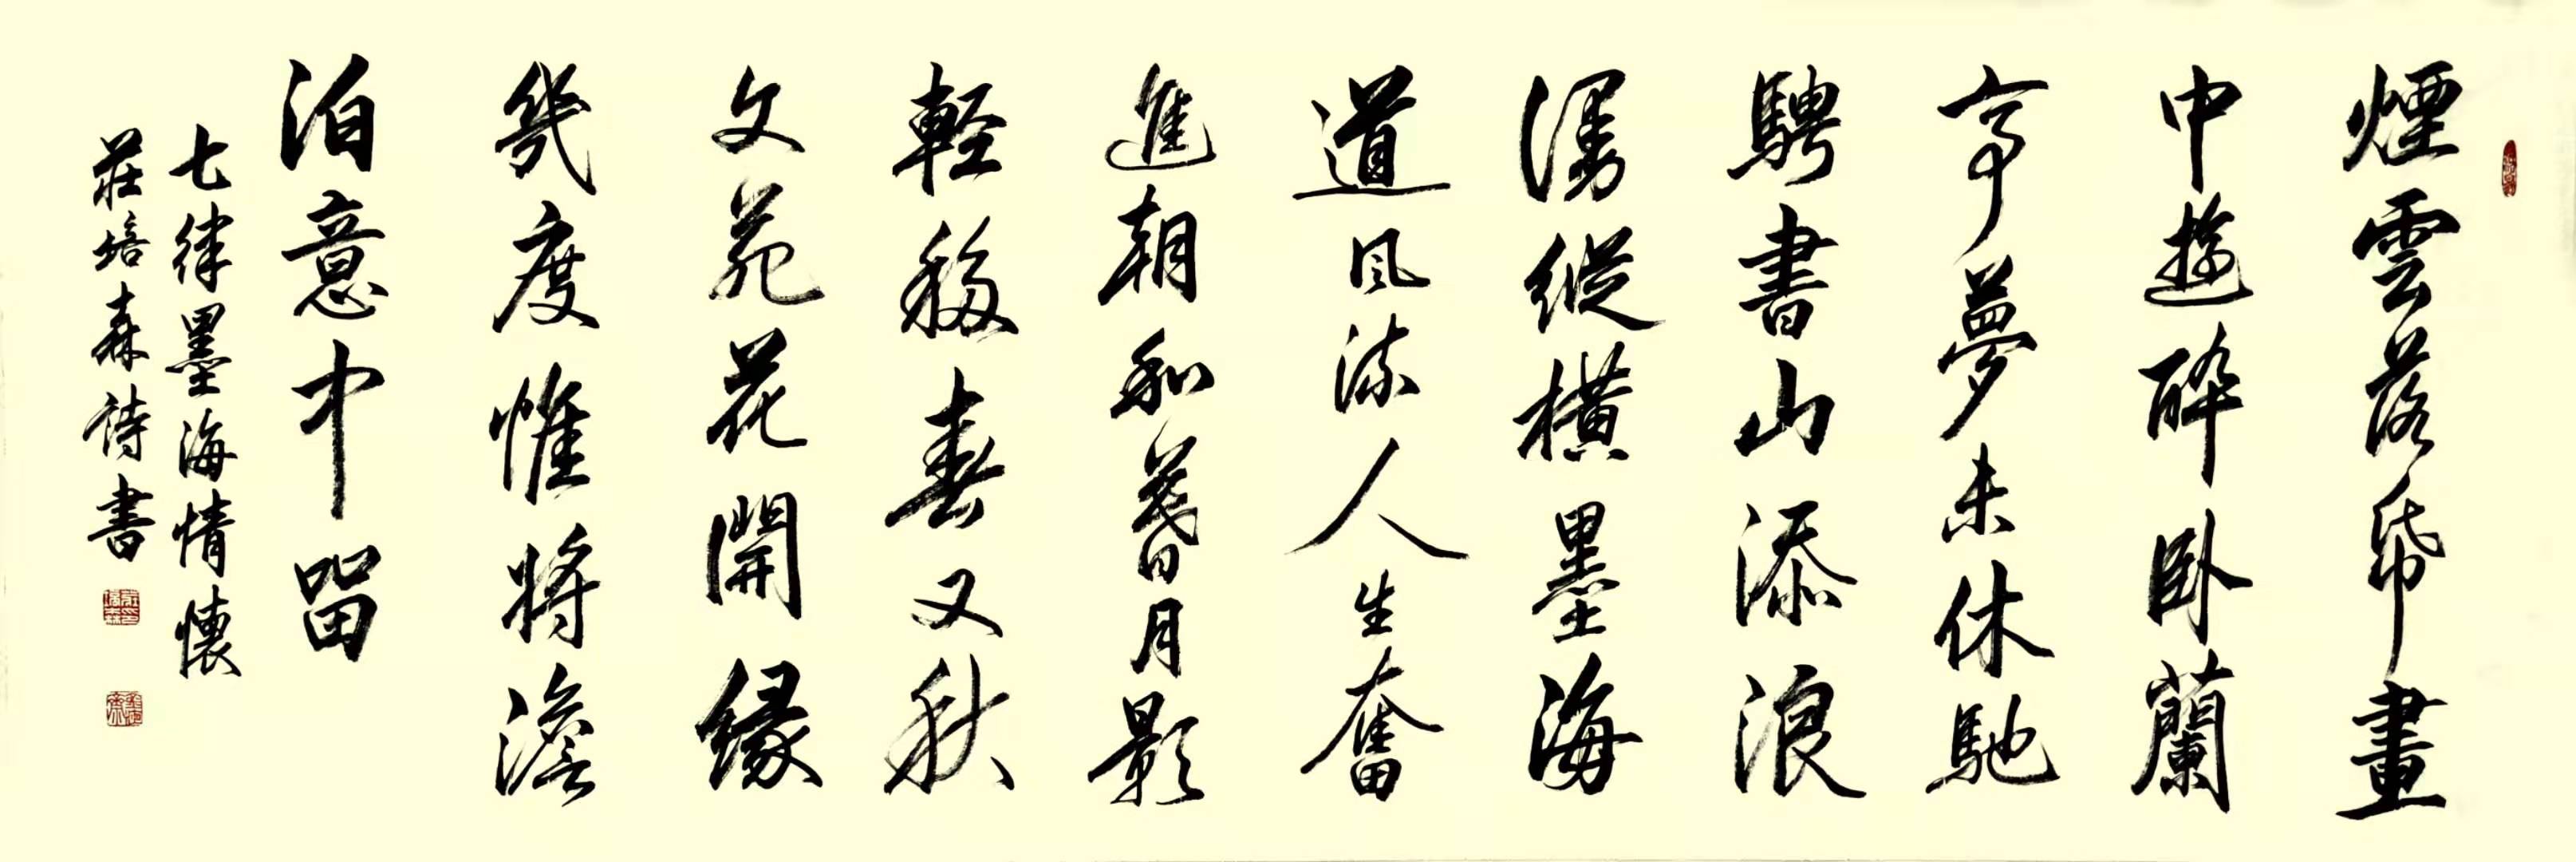 煙雲落帋畫
中遊醉卧蘭
亭夢未休馳
騁書山添浪
漫縱橫墨海
道風流人生奮
進朝和暮月影
輕移春又秋
文苑花開緣
幾度惟將澹
泊意中留
七律墨海情懷
莊培森詩書